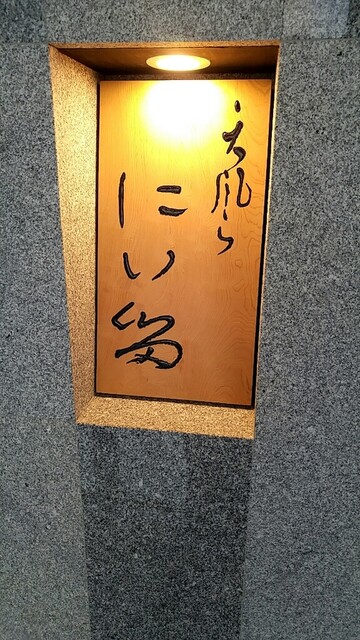 天ぷら
にい留